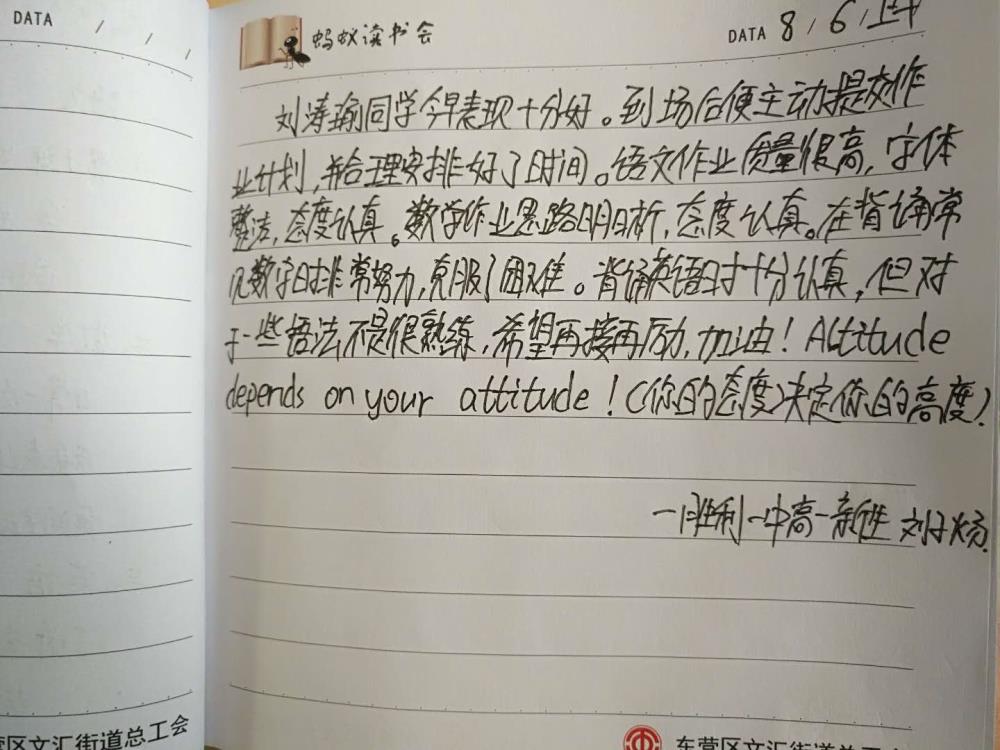 DATA / / /
蚂蚁读书会
DATA 8 / 6 / 上午
刘涛瑜同学今早表现十分好。到场后便主动提交作
业计划,并合理安排好了时间。语文作业质量很高,字体
整洁,态度认真。数学作业思路明晰,态度认真。在背诵常
见数字时非常努力,克服了困难。背诵英语时十分认真,但对
于一些语法不是很熟练,希望再接再厉,加油!Altitude
depends on your attitude!(你的态度决定你的高度)!
—胜利一中高一新生 刘子炀
营区文汇街道总工会
东营区文汇街道总工会